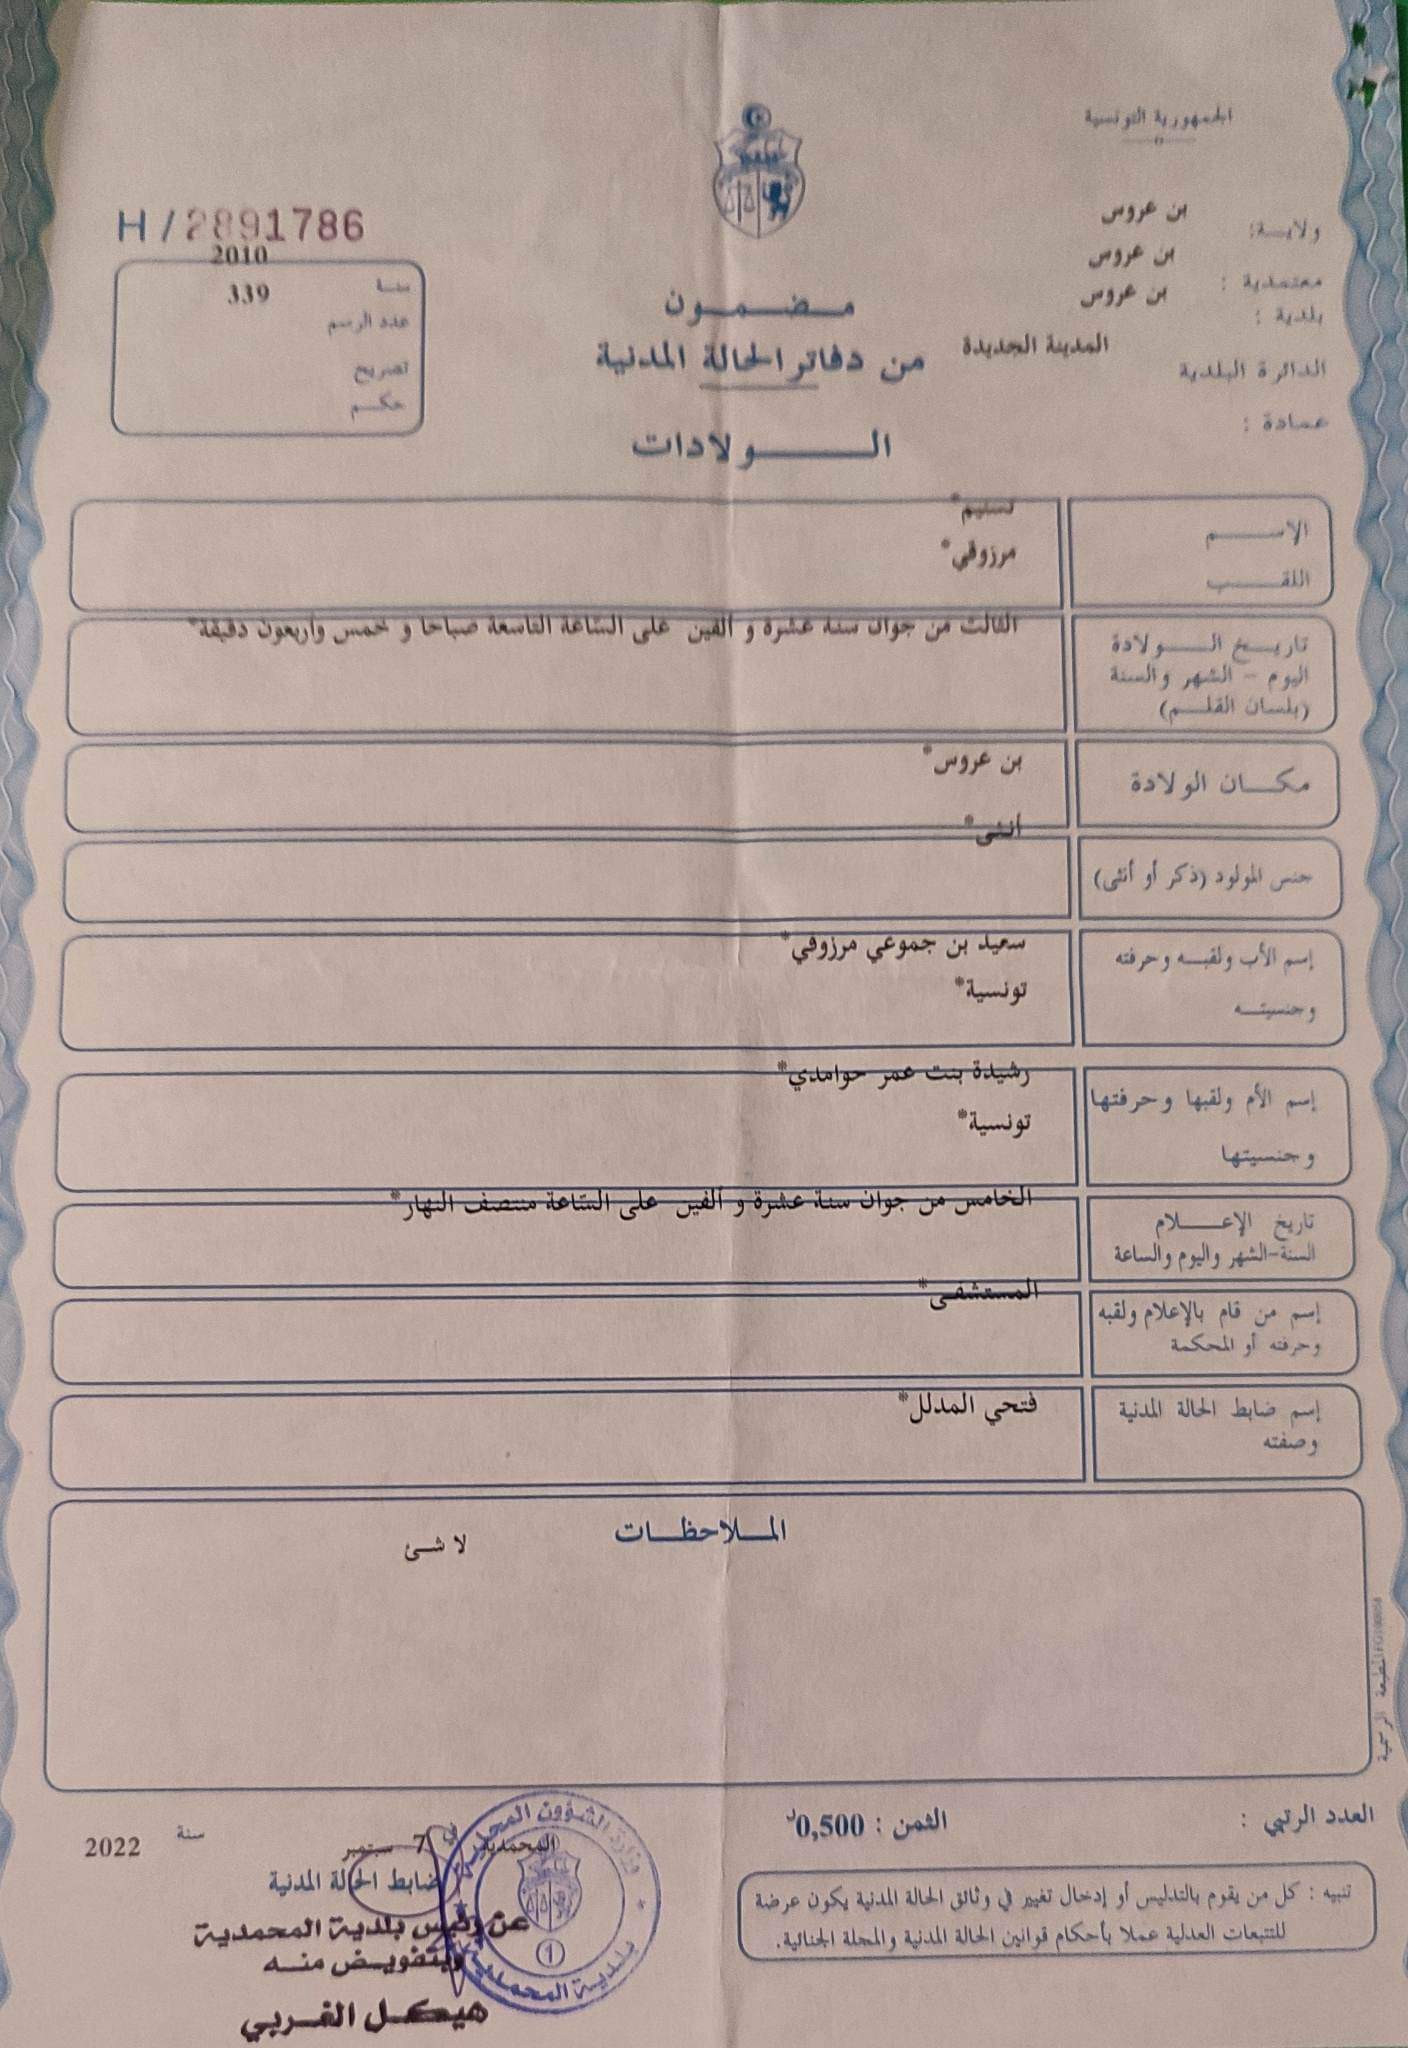 الجمهورية التونسية
ولاية: بن عروس
معتمدية : بن عروس
بلدية : بن عروس
الدائرة البلدية المدينة الجديدة
عمادة :
H / 2891786
سنة 2010
عدد الرسم 339
تصريح
حكم
مضمون
من دفاتر الحالة المدنية
الولادات
الإسم تسنيم*
اللقب مرزوقي*
تاريخ الولادة
اليوم - الشهر والسنة
(بلسان القلم)
الثالث من جوان سنة عشرة و ألفين على السّاعة التاسعة صباحا و خمس وأربعون دقيقة*
مكان الولادة بن عروس*
جنس المولود (ذكر أو أنثى) أنثى*
إسم الأب ولقبه وحرفته سعيد بن جموعي مرزوقي*
وجنسيته تونسية*
إسم الأم ولقبها وحرفتها رشيدة بنت عمر حوامدي*
وجنسيتها تونسية*
تاريخ الإعلام
السنة-الشهر واليوم والساعة
الخامس من جوان سنة عشرة و ألفين على السّاعة منتصف النهار*
إسم من قام بالإعلام ولقبه
وحرفته أو المحكمة
المستشفى*
إسم ضابط الحالة المدنية
وصفته
فتحي المدلل*
الملاحظات
لا شئ
العدد الرتبي :
الثمن : 0,500د
تنبيه : كل من يقوم بالتدليس أو إدخال تغيير في وثائق الحالة المدنية يكون عرضة
للتتبعات العدلية عملا بأحكام قوانين الحالة المدنية والمجلة الجنائية.
المحمدية في 7 سبتمبر سنة 2022
ضابط الحالة المدنية
عن رئيس بلدية المحمدية
وبتفويض منه
هيكل الغربي
وزارة الشؤون المحلية
بلدية المحمدية
1
المطبعة الرسمية